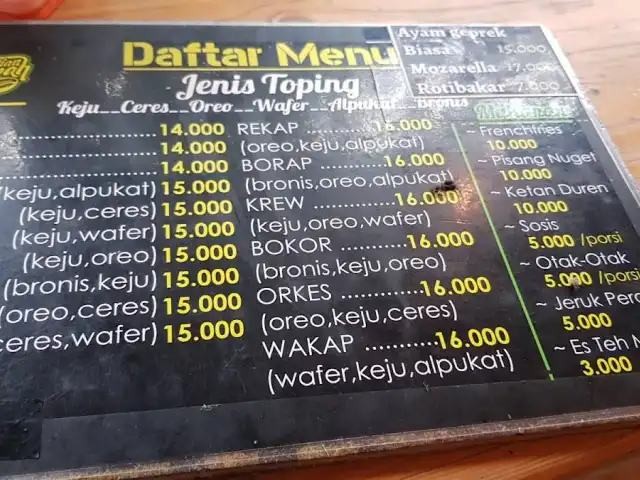 Daftar Menu
Jenis Toping
Keju__Ceres__Oreo__Wafer__Alpukat__Bronis
Ayam geprek
Biasa 15.000
Mozarella 17.000
Rotibakar 7.000
14.000
14.000
14.000
(keju,alpukat) 15.000
(keju,ceres) 15.000
(keju,wafer) 15.000
(keju,oreo) 15.000
(bronis,keju) 15.000
(oreo,ceres) 15.000
ceres,wafer) 15.000
REKAP 16.000
(oreo,keju,alpukat)
BORAP 16.000
(bronis,oreo,alpukat)
KREW 16.000
(keju,oreo,wafer)
BOKOR 16.000
(bronis,keju,oreo)
ORKES 16.000
(oreo,keju,ceres)
WAKAP 16.000
(wafer,keju,alpukat)
~ Frenchfries
10.000
~ Pisang Nuget
10.000
~ Ketan Duren
10.000
~ Sosis
5.000 /porsi
~ Otak-Otak
5.000 /porsi
~ Jeruk Per
5.000
~ Es Teh
3.000